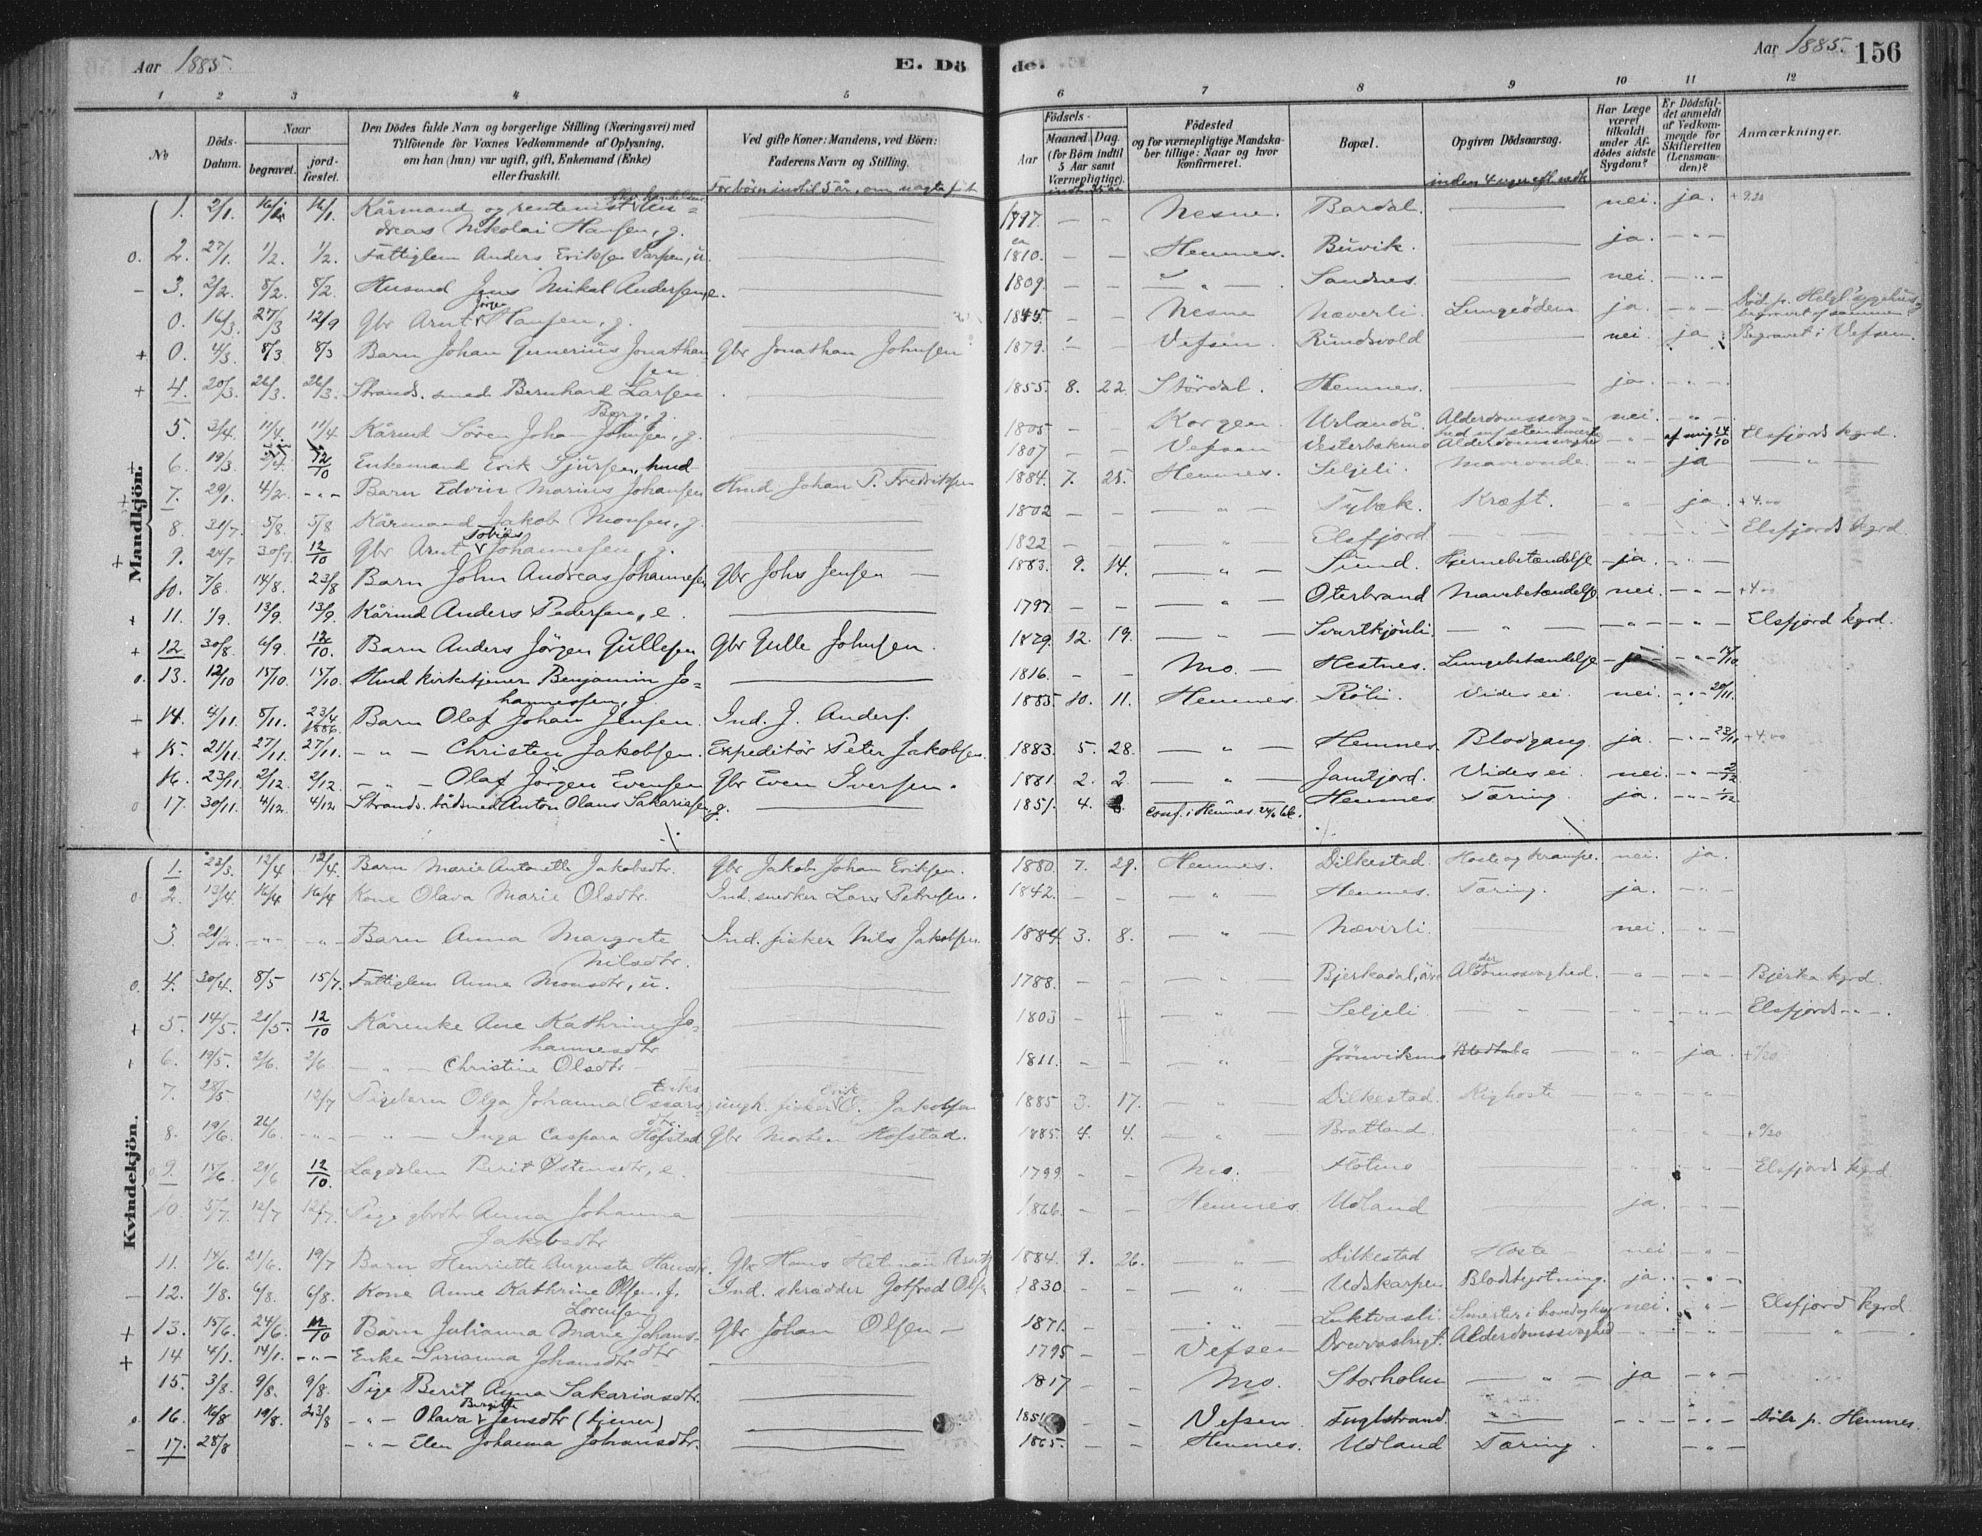 Aar 1885.
E. Dö
de.
Aar 1885. 156
1 2 3 4 5
6 7 8 9 10 11 12
No
Döds-Datum.
Naar
begravet.
jordfæstet.
Den Dödes fulde Navn og borgerlige Stilling (Næringsvei) med
Tilföiende for Voxnes Vedkommende af Oplysning,
om han (hun) var ugift, gift, Enkemand (Enke)
eller fraskilt.
Ved gifte Koner: Mandens, ved Börn:
Faderens Navn og Stilling.
For börn indtil 5 år, om
Födsels-
Aar
Maaned. Dag.
(for Börn indtil
5 Aar samt
Værnepligtige).
Födested
og for værnepligtige Mandskaber tillige: Naar og hvor
konfirmeret.
Bopæl.
Opgiven Dödsaarsag.
Har Læge
været
tilkaldt
under Afdödes sidste
Sygdom?
Er Dödsfaldet anmeldt
af Vedkommende for
Skifteretten
(Lensmanden)?
Anmærkninger.
Mandkjön.
1. 2/1. 16/1. Kårmand og rentenist 1797 – – Nesne. Bardal. nei. ja.
dreas Nikolai Hansen, g.
o. 2. 27/1. 1/2. 1/2. Fattiglem Anders Eriksen Varpen, u. 1810. – – Hemnes. Buvik. ja. – " –
– 3. 2/2. 8/2. 8/2. Husmd Jens Mikal Andersen, e. 1809. – – – " – Sandnes. nei. – " –
0. 16/3. 27/3 12/9 Gbr Arnt Jörgen Hansen, g. 1845. – – Nesne Næverli. ja. – " – Död p. Helgl. sygehus
+ 0. 4/3. 8/3 8/3 Barn Johan Gunerius Jonathansen Gbr Jonathan Johnsen 1879. Vefsen Rundsvold nei. ja Begravet i Vefsen.
+ 4. 20/3. 26/3. 26/3. Strands. smed Bernhard Larsen 1855. 8. 22. Stördal. Hemnes. ja. – " –
Berg, g.
5. 3/4. 11/4. 11/4. Kårmd Sören Johan Johnsen, g. 1805 – Korgen Urlandå Alderdomssvag- nei.
6. 19/3. 12/10 Enkemand Erik Sjursen, hmd 1807 – – Vefsen Alderdomssvaghed Elsfjords kgrd.
+ 7. 29/1. 4/2. – " – Barn Edvin Marius Johansen Hmd Johan P. Fredriksen 1884. 7. 25. Hemnes. Seljeli. Maveonde. – " – ja – " –
8. 31/7. 5/8. 5/8 Kårmand Jakob Monsen, g. 1802 – – – " – Tybæk. Kræft. – " – ja. + 4.00
+ 9. 24/7 30/7. 12/10 Gbr Arnt Tobias Johannesen, g. 1822 – – – " – Elsfjord Elsfjords kgrd
10. 7/8. 14/8. 23/8 Barn John Andreas Johannesen Gbr Johs Jensen 1883. 9. 14. – " – Sund. Hjernebetændelse – ja. – " –
+ 11. 1/9. 13/9. 13/9. Kårmd Anders Pedersen, e. 1797. – – – " – Oterbrand Mavebetændelse nei. – " – + 4.00
+ 12 30/8. 6/9. 12/10. Barn Anders Jörgen Gullesen Gbr Gulle Johnsen. 1879. 12. 19. – " – Svartkjönli. – " – – " – – " – Elsfjord kgrd.
o. 13. 12/10 15/10. 15/10. Hmd kirketjener Benjamin Jo= 1816. – – Mo. – Hestnes. Lungebetændelse – ja – – " – 14/10
hannessen, g.
– 14. 4/11. 8/11. 23/4 1886. Barn Olaf Johan Jensen. Ind. J. Anders. 1885. 10. 11. Hemnes. Röli. Vides ei. nei. – " – 20/11.
+ 15. 21/11. 27/11. 27/11. – " – Christen Jakobsen. Expeditör Peter Jakobsen. 1883. 5. 28. – " – Hemnes. Blodgang ja. – " – 23/11 + 4.00
16. 23/11. 2/12. 2/12. – " – Olaf Jörgen Evensen Gbr Even Iversen. 1881. 2. 2 – " – Jamtjord. Vides ei. nei. – " – 2/12
o 17. 30/11. 4/12. 4/12 Strands. bådsmed Anton Olaus Sakariasen, g. 1851. 4. conf. i Hemnes 24/6 66. Hemnes Tæring. ja. – " – 1/12
Kvindekjön.
1. 23/3. 12/4 12/4. Barn Marie Antonette Jakobsdtr. Gbr Jakob Johan Eriksen. 1880. 7. 29. Hemnes. Dilkestad. Hoste og krampe. nei. ja.
o. 2. 13/4. 16/4 16/4 Kone Olava Marie Olsdtr. Ind. snedker Lars Petersen. 1842. – – – " – Hemnes. Tæring. ja. – " –
3. 21/2. – " – – " – Barn Anna Margrete Ind. fisker Nils Jakobsen 1884 3. 8. – " – Næverli. nei. – " –
Nilsdtr.
o. 4. 30/4. 8/5 15/7. Fattiglem Anne Monsdtr, u. 1788. – – – " – Bjerkadal, Alderdomssvaghed. – " – – " – Bjerka kgrd.
+ 5. 14/5. 21/5. 12/10 Kårenke Ane Kathrine Jo= 1803 – – – " – Seljeli – " – – " – – " – Elsfjords – " –
hannesdtr
6. 19/5. 2/6. 2/6. – " – Christine Olsdtr 1811. – – – " – Grönvikmo – " – ja.
7. 28/5 12/7 Pigebarn Olga Johanna ungk. fisker Erik E. Jakobsen 1885 3. 17. – " – Dilkestad. Kighoste – " – – " –
8. 19/6. 26/6. – " – – " – Inga Caspara Hofstad Gbr Morten Hofstad. 1885. 4. 4. – " – Bratland
9. 15/6. 21/6 12/10. Lægdslem Berit Östensdtr, e. 1799 – – Mo. Elsfjords kgrd
10. 5/7. 12/7 12/7. Pige gbrdtr Anna Johanna 1866. – – Hemnes. Udland ja. – " –
Jakobsdtr
11. 14/6. 21/6. 19/7 Barn Henriette Augusta Hansdtr. Gbr Hans Hetman 1884. 9. 26. – " – Dilkestad Hoste nei – " –
– 12. 1/8. 6/8. 6/8. Kone Anne Kathrine Olsen, g. Ind. skrædder Gotfred Olsen 1830 – – – " – Udskarpen. Blodstyrtning. ja. – " –
+ 13. 15/6. 24/6. 12/10 Barn Julianna Marie Johans- Gbr Johan Olsen – 1871. – – – " – Luktvasli. nei. – " – Elsfjord kgrd
dtr
+ 14 4/1. 14/1. – " – Enke Sirianna Johansdtr 1795 – – Vefsen Alderdomssvaghed – " – – " –
15. 3/8. 9/8. 9/8. Pige Berit Anna Sakariasdtr. 1817 – – Mo. Storholm – " – ja – " –
o 16. 16/8 19/8. 23/8 – " – Olava Birgitte Jensdtr (tjener) 185 – – Vefsen. Fuglstrand. – " – Döbt p. Hemnes.
– 17. 28/8 – " – Elen Johanna Johansdtr. 1865. – – Hemnes. Udland Tæring. – " –